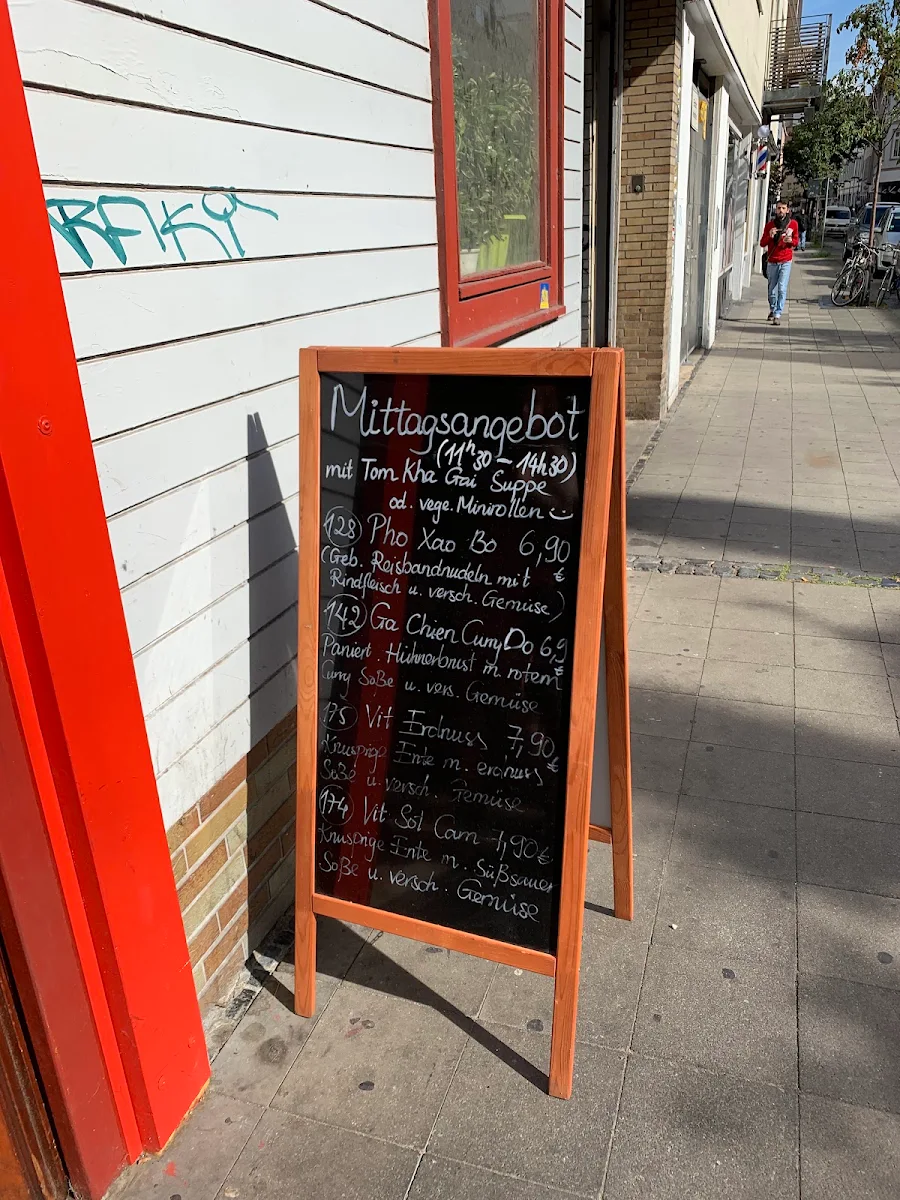 Mittagsangebot
(11h30 - 14h30)
mit Tom Kha Gai Suppe
od. vege. Minirollen
128 Pho Xao Bo 6,90 €
(Geb. Reisbandnudeln mit
Rindfleisch u. versch. Gemüse)
142 Ga Chien Curry Do 6,9 €
Paniert. Hühnerbrust m. rotem
Curry Soße u. vers. Gemüse
175 Vit Erdnuss 7,90 €
Knusprige Ente m. erdnuss
Soße u. versch. Gemüse
174 Vit Sot Cam 7,90 €
Knusprige Ente m. Süßsauer
Soße u. versch. Gemüse